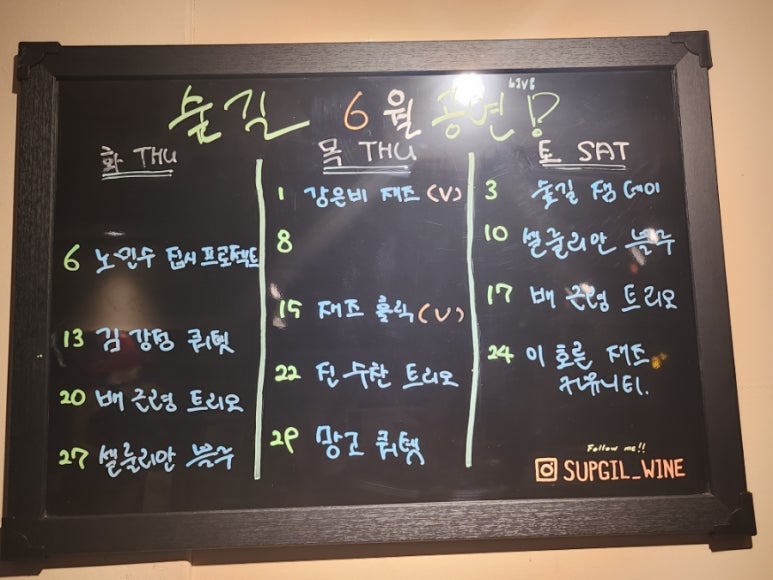 숲길 6월 공연!?
LIVE
화 THU
6 노민수 집시 프로젝트
13 김강정 쿼텟
20 배근령 트리오
27 셀룰리안 블루
목 THU
1 강은비 재즈 (V)
8
15 재즈 홀릭 (V)
22 진수찬 트리오
29 망고 쿼텟
토 SAT
3 숲길 잼 데이
10 셀룰리안 블루
17 배근령 트리오
24 이호른 재즈
커뮤니티.
Follow me!!
SUPGIL_WINE